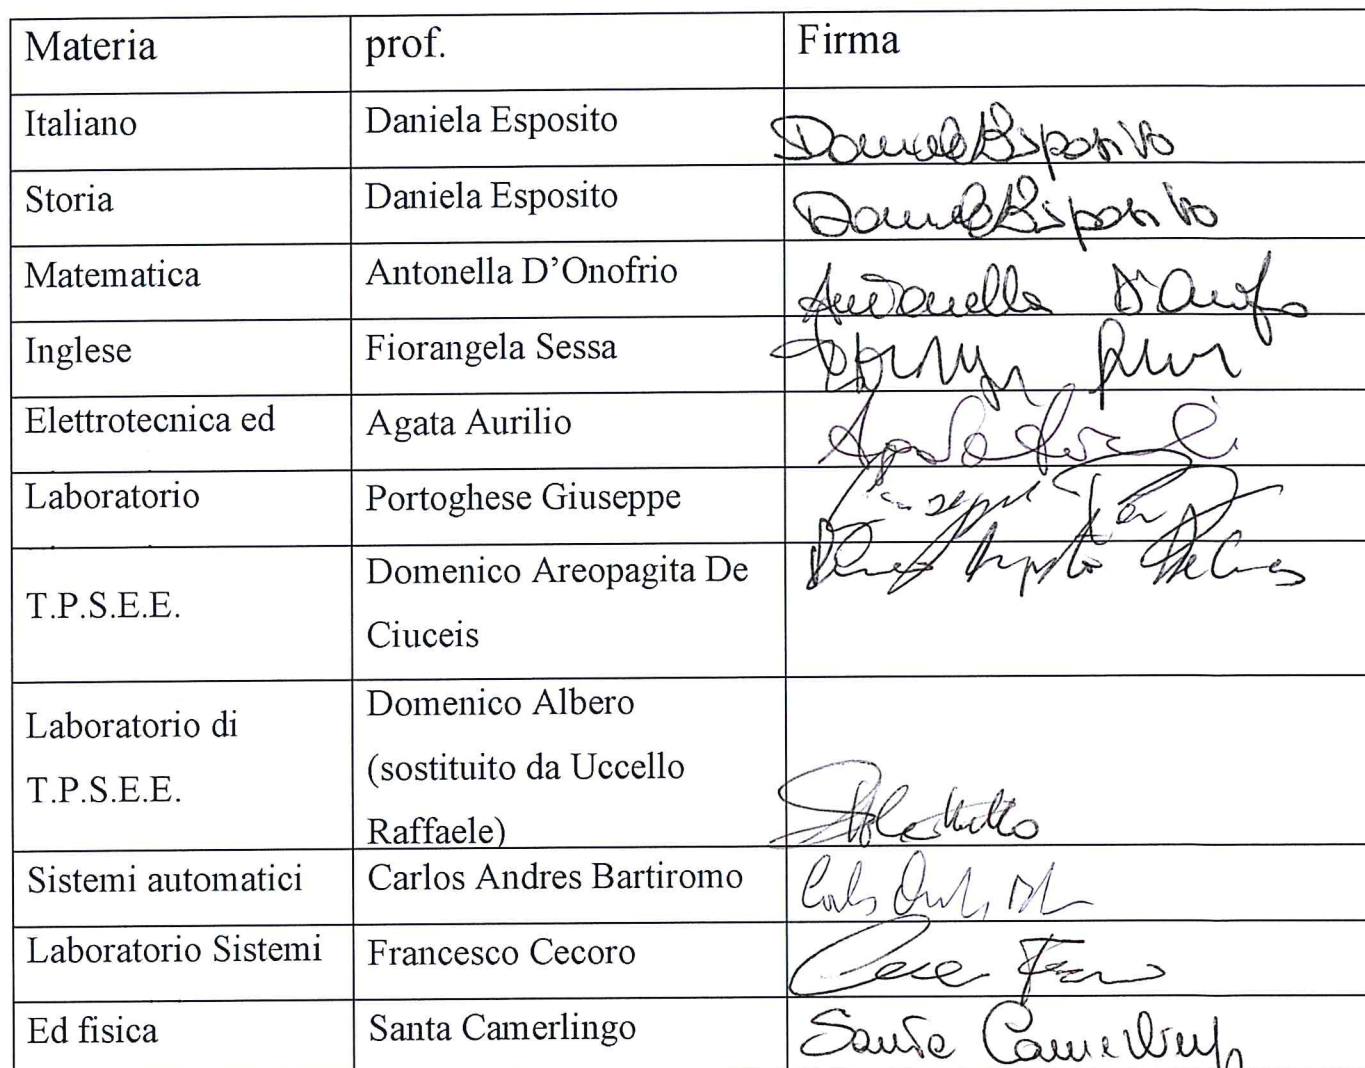 Materia prof. Firma
Italiano Daniela Esposito Daniela Esposito
Storia Daniela Esposito Daniela Esposito
Matematica Antonella D'Onofrio Antonella D'Onofrio
Inglese Fiorangela Sessa
Elettrotecnica ed Agata Aurilio
Laboratorio Portoghese Giuseppe Giuseppe
T.P.S.E.E. Domenico Areopagita De
Ciuceis
Laboratorio di
T.P.S.E.E. Domenico Albero
(sostituito da Uccello
Raffaele)
Sistemi automatici Carlos Andres Bartiromo
Laboratorio Sistemi Francesco Cecoro
Ed fisica Santa Camerlingo Santa Camerlingo